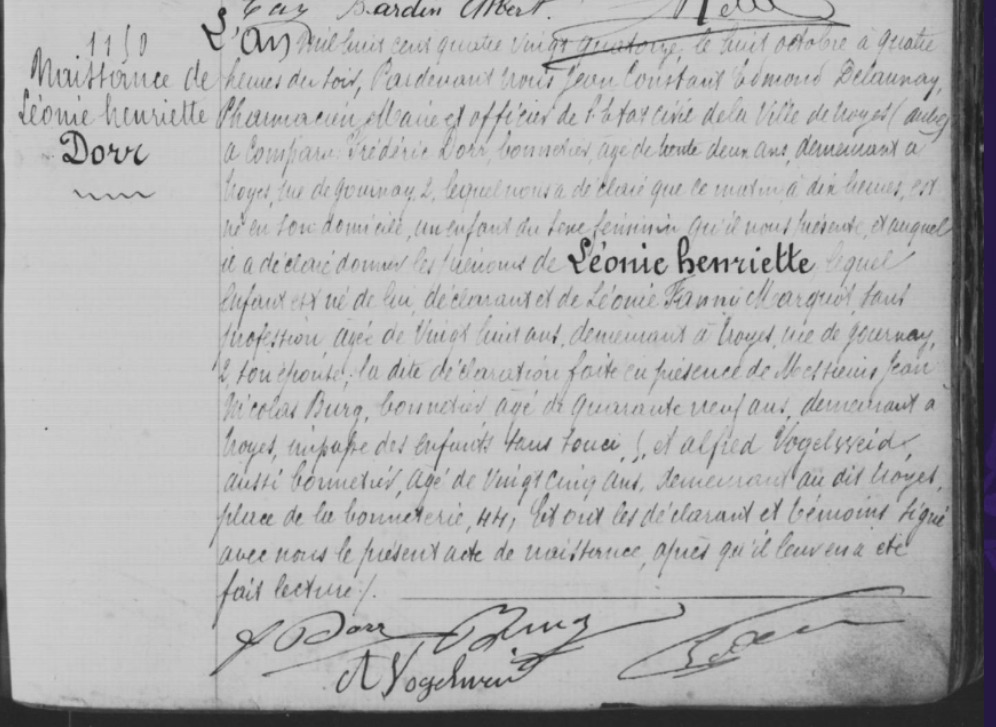 Bardin Albert.
1150
Naissance de
Léonie henriette
Dorr
L'an Mil huit cent quatre vingt quatorze, le huit octobre à quatre
heures du soir, Pardevant nous Jean Constant Edmond Delaunay,
Pharmacien, Maire et officier de l'Etat civil de la Ville de troyes (aube)
a comparu Frédéric Dorr, bonnetier, agé de trente deux ans, demeurant à
troyes, rue de gournay, 2, lequel nous a déclaré que ce matin à dix heures, est
né en son domicile, un enfant du sexe féminin qu'il nous présente, et auquel
il a déclaré donner les prénoms de Léonie henriette, lequel
enfant est né de lui, déclarant et de Léonie Fanny Marquot, sans
profession, agée de Vingt huit ans, demeurant à troyes, rue de gournay,
2, son épouse; la dite déclaration faite en présence de Messieurs Jean
Nicolas Burg, bonnetier agé de quarante neuf ans, demeurant à
troyes, impasse des enfants sans souci, et alfred Vogelweid,
aussi bonnetier, agé de Vingt cinq ans, demeurant au dit troyes,
place de la bonneterie, 44; Et ont les déclarant et témoins signé
avec nous le présent acte de naissance, après qu'il leur en a été
fait lecture /.
f Dorr Burg
A Vogelweid